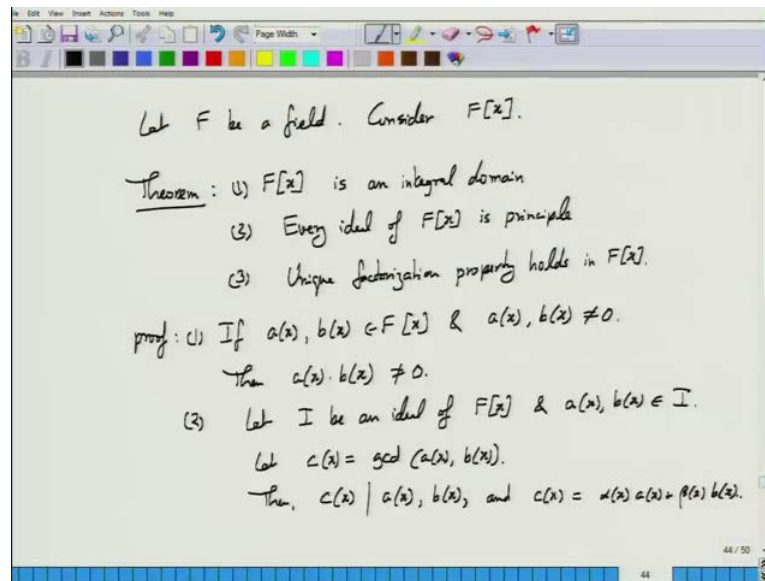 Edit View Insert Actions Tools Help
Page Width
B I
Let F be a field. Consider F[x].
Theorem: (1) F[x] is an integral domain
(2) Every ideal of F[x] is principle
(3) Unique factorization property holds in F[x].
proof: (1) If a(x), b(x) ∈ F[x] & a(x), b(x) ≠ 0.
Then a(x). b(x) ≠ 0.
(2) Let I be an ideal of F[x] & a(x), b(x) ∈ I.
Let c(x) = gcd (a(x), b(x)).
Then, c(x) | a(x), b(x), and c(x) = α(x) a(x) + β(x) b(x).
44 / 50
44